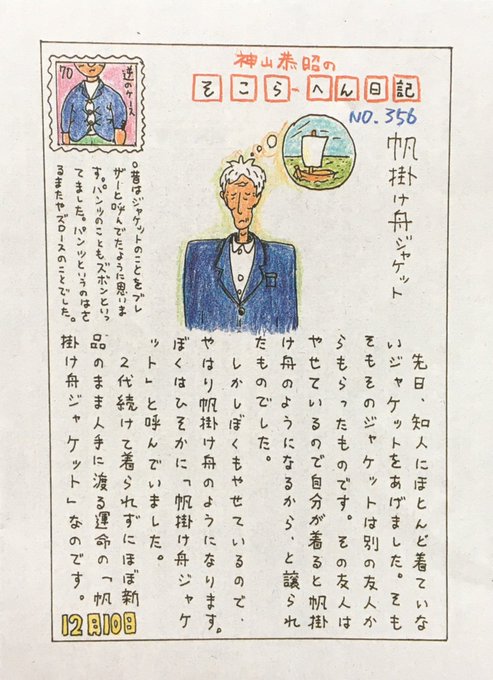 神山恭昭の
そこらーへん日記
NO.356
帆掛け舟ジャケット
先日、知人にほとんど着ていな
いジャケットをあげました。そも
そもそのジャケットは別の友人か
らもらったものです。その友人は
やせているので自分が着ると帆掛
け舟のようになるから、と譲られ
たものでした。
しかしぼくもやせているので、
やはり帆掛け舟のようになります。
ぼくはひそかに「帆掛け舟ジャケ
ット」と呼んでいました。
2代続けて着られずにほぼ新
品のまま人手に渡る運命の「帆
掛け舟ジャケット」なのです。
12月10日
70
逆のケース
○昔はジャケットのことをブレ
ザーと呼んでたように思いま
す。パンツのこともズボンといっ
てました。パンツというのはさ
るまたやズロースのことでした。